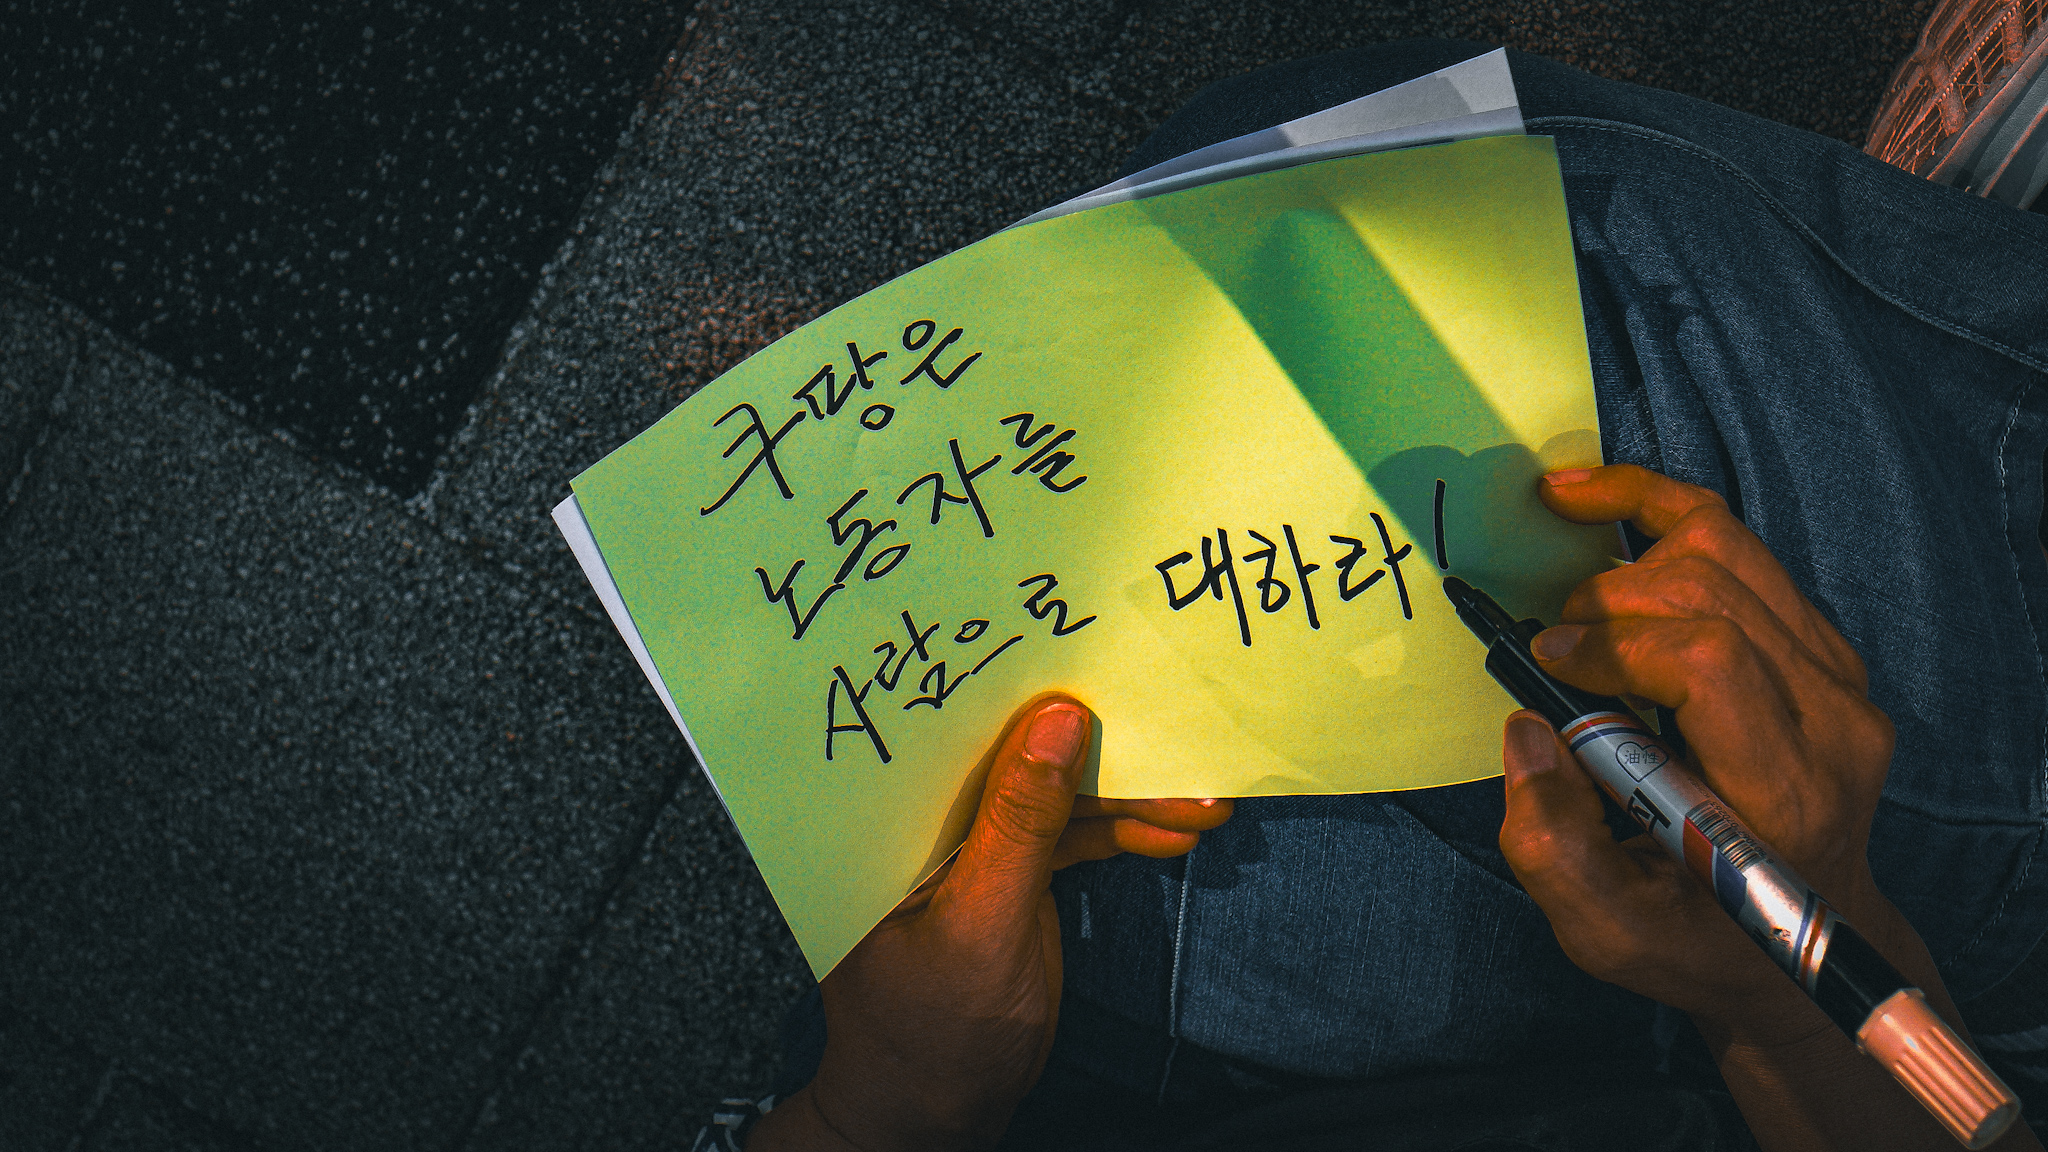 쿠팡은
노동자를
사람으로 대하라!
油性